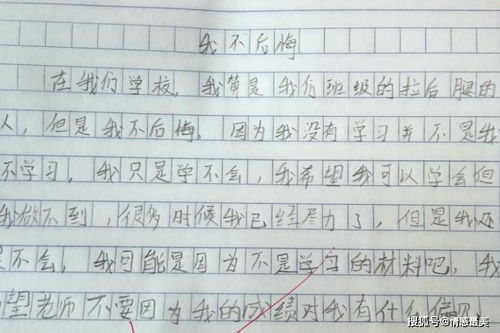 我不后悔
在我们学校，我算是我们班级的拉后腿的
人，但是我不后悔。因为我没有学习并不是我
不学习，我只是学不会，我希望我可以学会但
我做不到，很多时候我已经尽力了，但是我还
是不会，我可能是因为不是学习的材料吧，我
望老师不要因为我的成绩对我有什么偏
搜狐号@情感最美